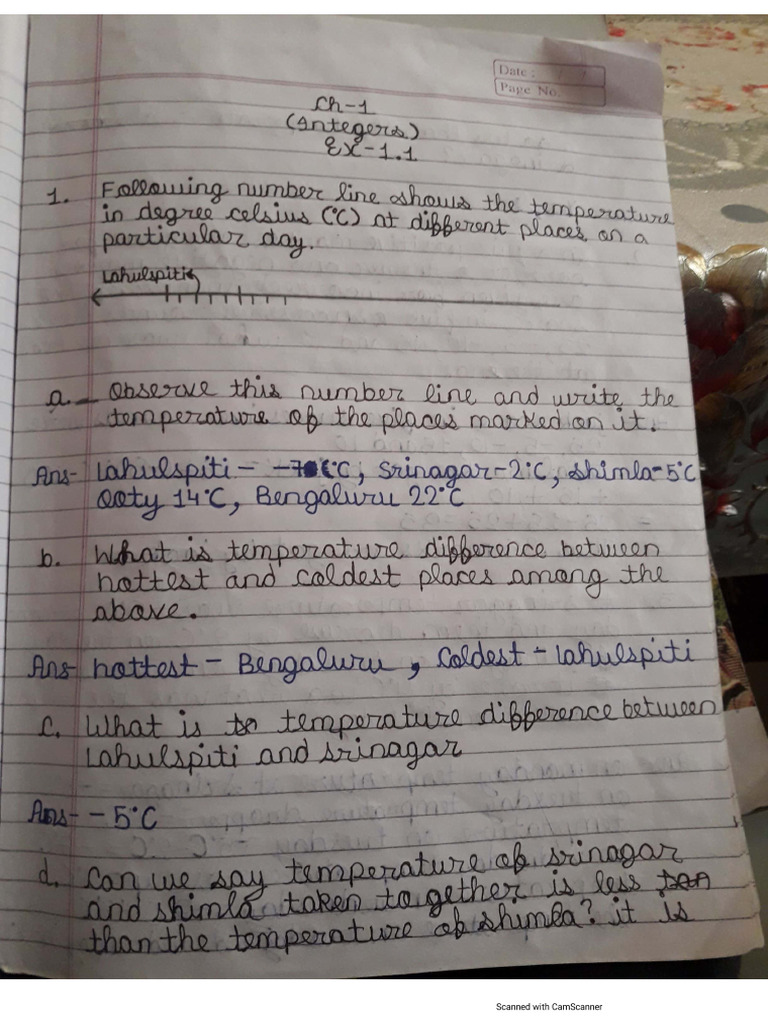 Date : / /
Page No.
Ch-1
(Integers)
Ex-1.1
1. Following number line shows the temperature
in degree celsius (°C) at different places on a
particular day.
Lahulspiti
a. Observe this number line and write the
temperature of the places marked on it.
Ans- Lahulspiti - -7 °C, Srinagar -2°C, Shimla - 5°C
Ooty 14°C, Bengaluru 22°C
b. What is temperature difference between
hottest and coldest places among the
above.
Ans- hottest - Bengaluru, Coldest - lahulspiti
c. What is temperature difference between
Lahulspiti and srinagar
Ans- - 5°C
d. Can we say temperature of srinagar
and shimla taken to gether is less
than the temperature of shimla? it is
Scanned with CamScanner